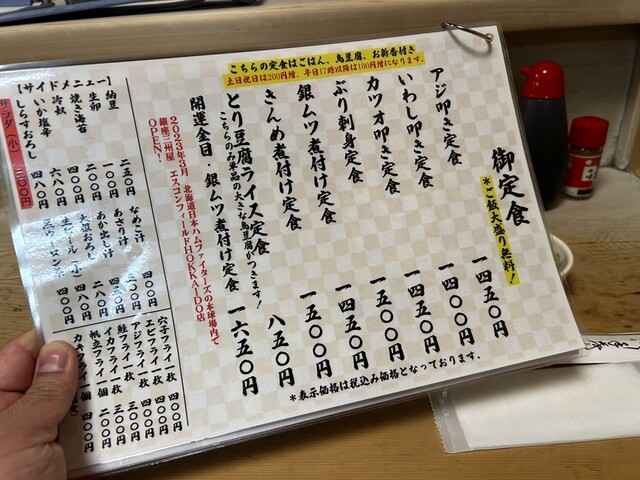 こちらの定食はごはん、鳥豆腐、お新香付き
土日祝日は200円増、平日17時以降は100円増になります。
御定食
＊ご飯大盛り無料！
アジ叩き定食 一四五〇円
いわし叩き定食 一四〇〇円
カツオ叩き定食 一四五〇円
ぶり刺身定食 一五〇〇円
銀ムツ煮付け定食 一四五〇円
きんめ煮付け定食 一五〇〇円
とり豆腐ライス定食 八五〇円
こちらのみ単品の大きな鳥豆腐がつきます！
開運金目・銀ムツ煮付け定食 一六五〇円
2023年3月 北海道日本ハムファイターズの本球場内で
銀座三州屋 エスコンフィールドHOKKAIDO店
OPEN！
＊表示価格は税込み価格となっております。
【サイドメニュー】
納豆 二五〇円
生卵 一〇〇円
焼き海苔 二〇〇円
冷奴
いか塩辛 六八〇円
しらすおろし 四八〇円
サラダ（小） 三〇〇円
なめこ汁 四〇〇円
あさり汁
あか出し汁 二〇〇円
大根おろし 二八〇円
生ビール（小） 四五〇円
四〇〇円
穴子フライ一枚 四〇〇円
エビフライ一枚
アジフライ一枚 四〇〇円
鮭フライ一枚 三〇〇円
イカフライ一枚 三〇〇円
帆立フライ一個 二〇〇円
カキフライ一個 四〇〇円